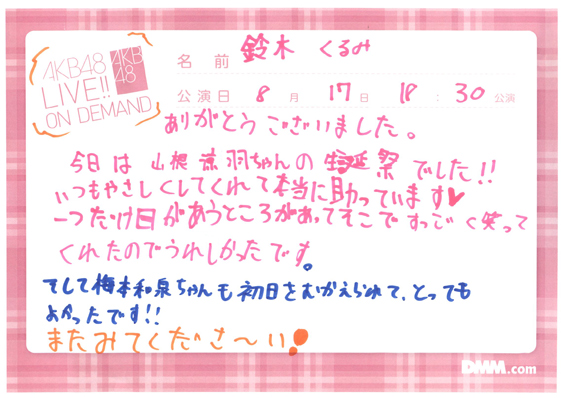 AKB48
LIVE!!
ON DEMAND
AKB
48
名前 鈴木 くるみ
公演日 8月 17日 18:30公演
ありがとうございました。
今日は山根涼羽ちゃんの生誕祭でした!!
いつもやさしくしてくれて本当に助っています♥
一つだけ目があうところがあってそこですっごく笑って
くれたのでうれしかったです。
そして梅本和泉ちゃんも初日をむかえられて、とっても
よかったです!!
またみてくださ〜い!
DMM.com